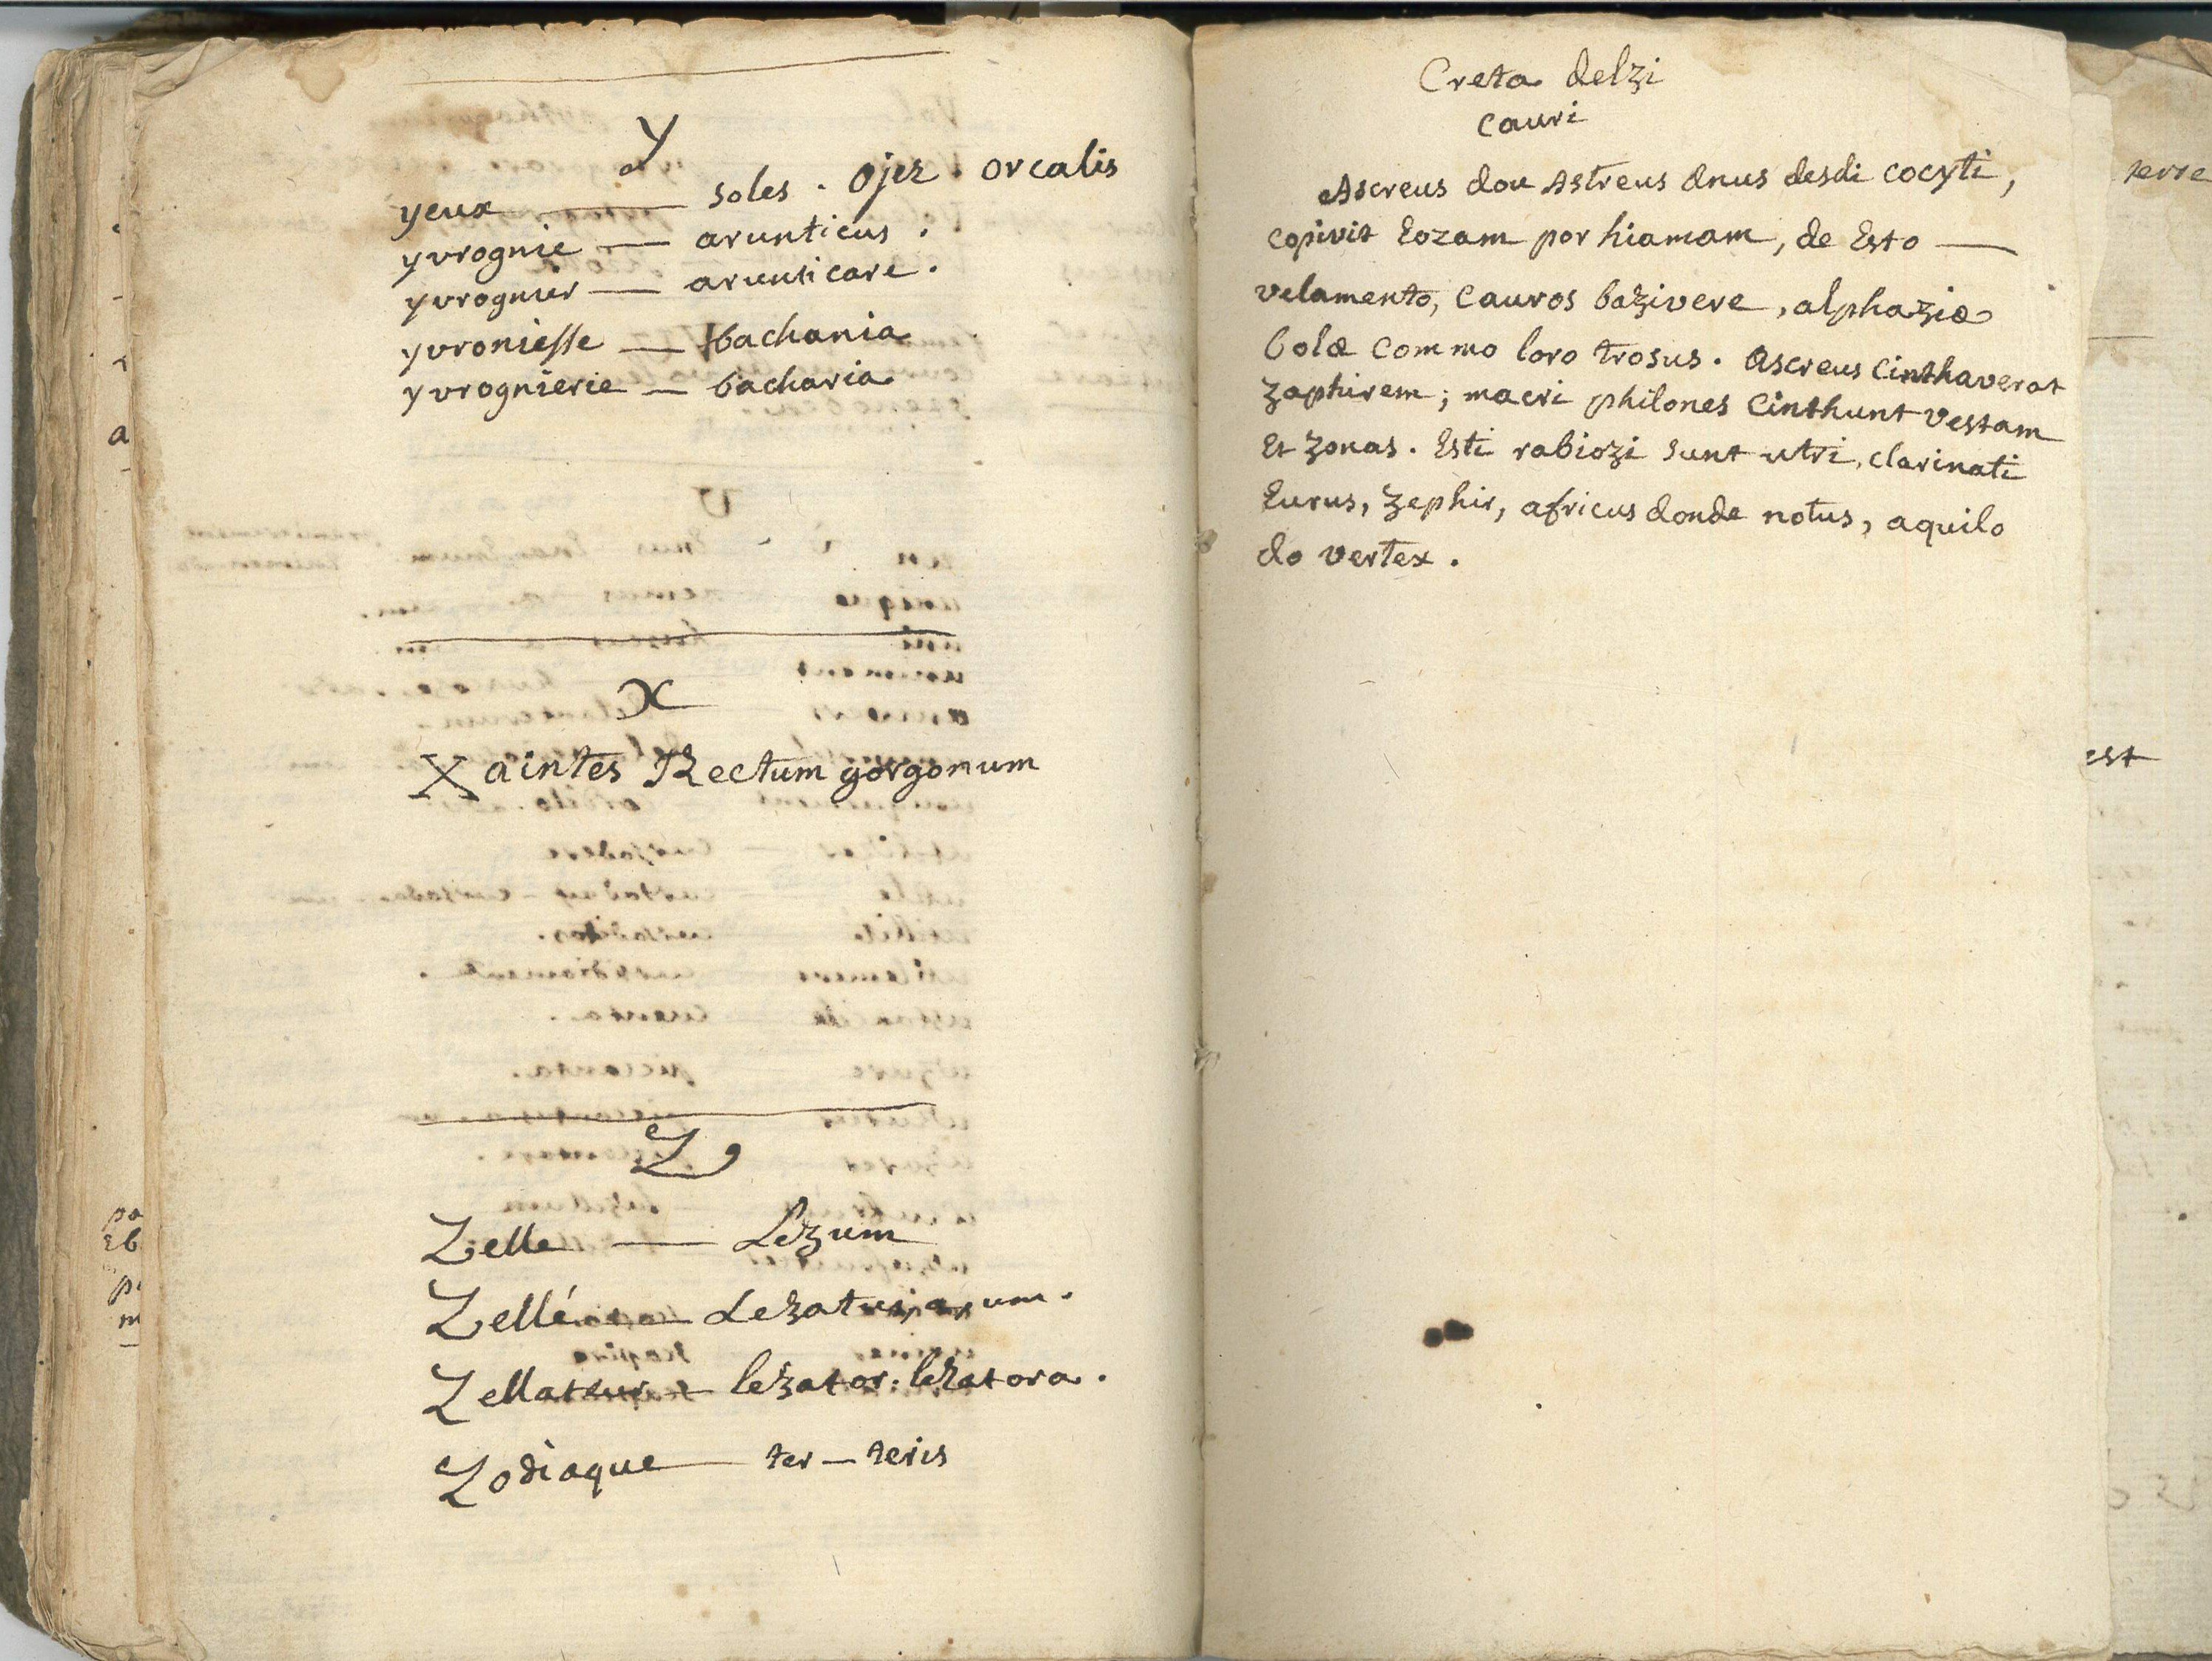 Y
yeux — soles . Ojez . orcalis
yvrognie — arunticus .
yvrognier — arunticare .
yvroniesse — bachania
yvrognierie — bacharia
X
Xaintes Rectum gorgonum
Z
Zelle — Lezum
Zellé — Lezatus, a, um .
Zellateur — lezator : lezatora .
Zodiaque — ter — teris
Creta delzi
cauri
Ascreus dou Astreus dnus desdi cocyti,
copivit Eozam por hiamam, de Esto —
velamento, Cauros bazivere, alphaziæ
bolæ commo loro trosus . Ascreus Cinthaverat
zaphirem ; macri philones Cinthunt vestam
Et zonas . Esti rabiozi sunt utri, clarinati
Eurus, zephir, africus donde notus, aquilo
do vertex .
terre
est
a
pa